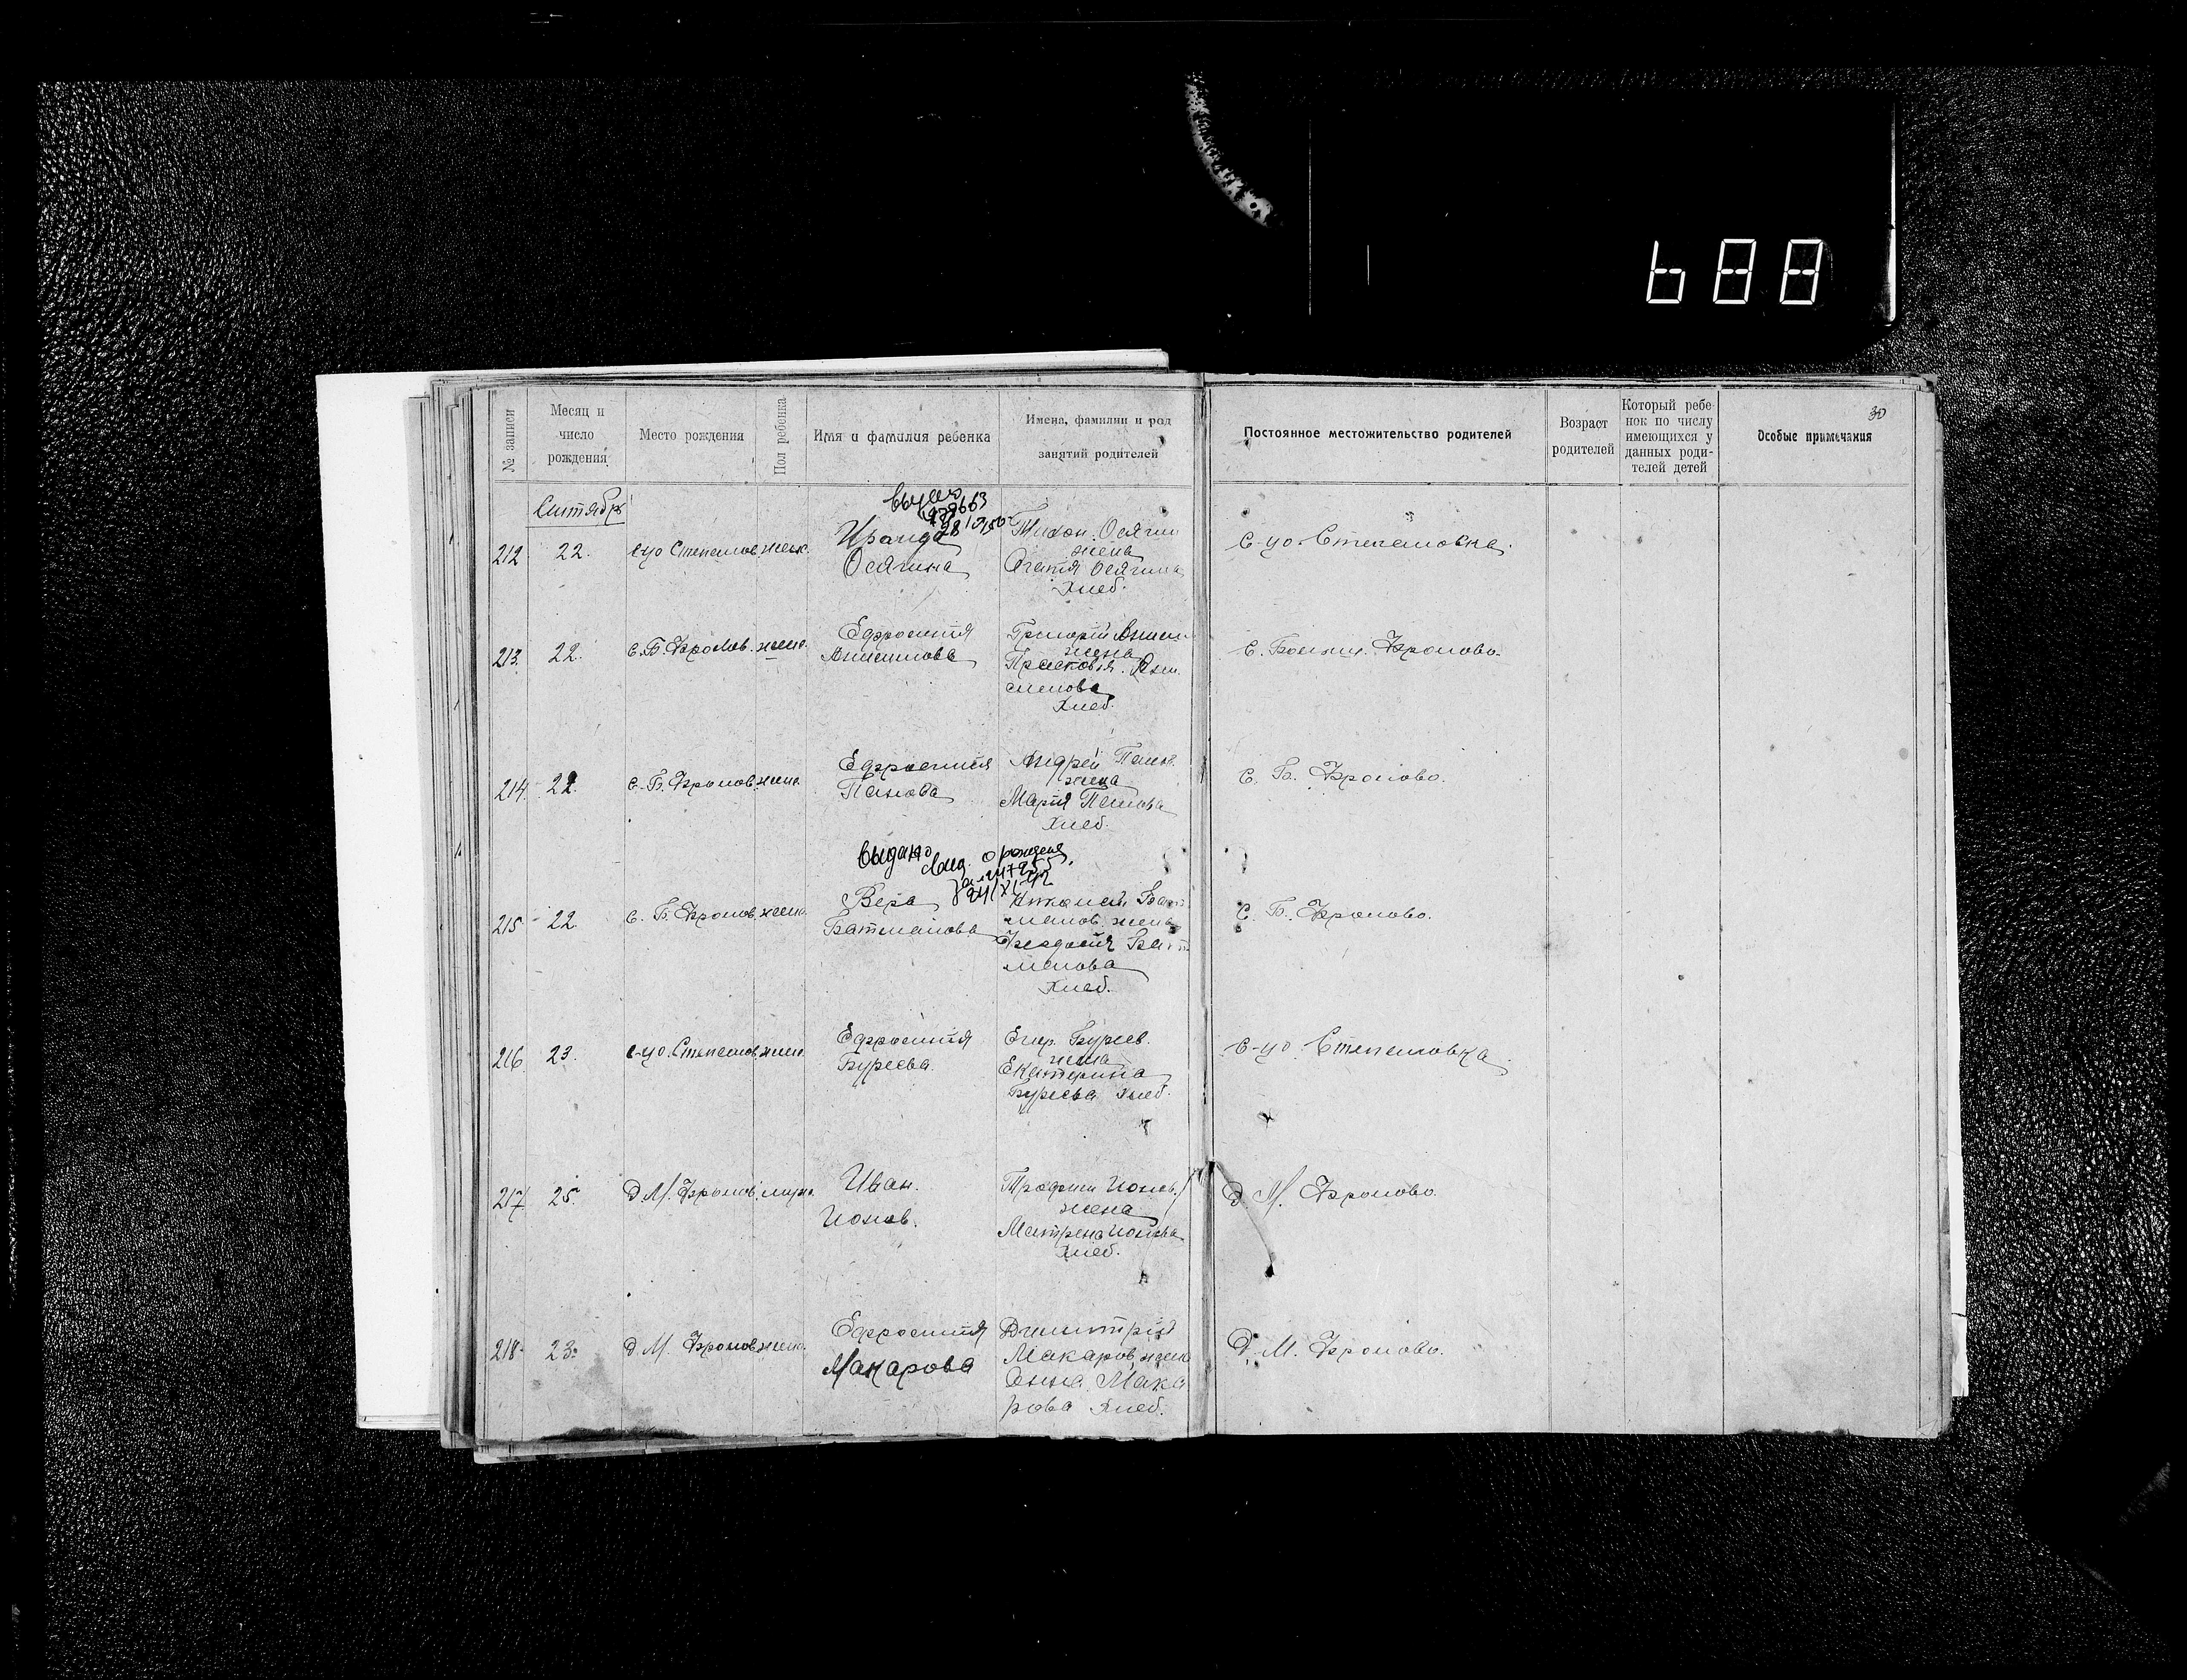 688
№ записи
Месяц и число рождения
Место рождения
Пол ребенка
Имя и фамилия ребенка
Имена, фамилии и род занятий родителей
Постоянное местожительство родителей
Возраст родителей
Который ребенок по числу имеющихся у данных родителей детей
Особые примечания
30
Сентябрь
212
22.
с-цо Степанов.
женс.
Ираида
Осягина
Тихон Осягин
жена
Агатія Осягина
Хлеб.
с-цо. Степановка.
213.
22.
с. Б. Фролов.
женс.
Ефросинія
Анисимова
Григорій
жена
Прасковья. Ани
симова
Хлеб.
с. Больш. Фролово.
214.
22.
с. Б. Фролов.
женс.
Ефросинія
Панова
Андрей Панов.
жена
Марія Панова
Хлеб.
с. Б. Фролово.
выдано
свид. о рожден
24/XI-42
215
22.
с. Б. Фролов.
женс.
Вера
Батманова
Бат
манов, жена
Феодосія Бат
манова
Хлеб.
с. Б. Фролово.
216
23.
с-цо. Степанов.
женс.
Ефросинія
Буреева.
Егор. Буреев.
жена
Екатерина
Буреева хлеб.
с-цо. Степановка.
217
25.
д. М. Фролов.
мужс.
Иван.
Ионов.
Трофим Ионов.
жена
Матрена Ионова
Хлеб.
д. М. Фролово.
218.
23.
д. М. Фролов
женс.
Ефросинія
Макарова
Димитрій
Макаров, жена
Анна Мака
рова Хлеб.
Д. М. Фролово.